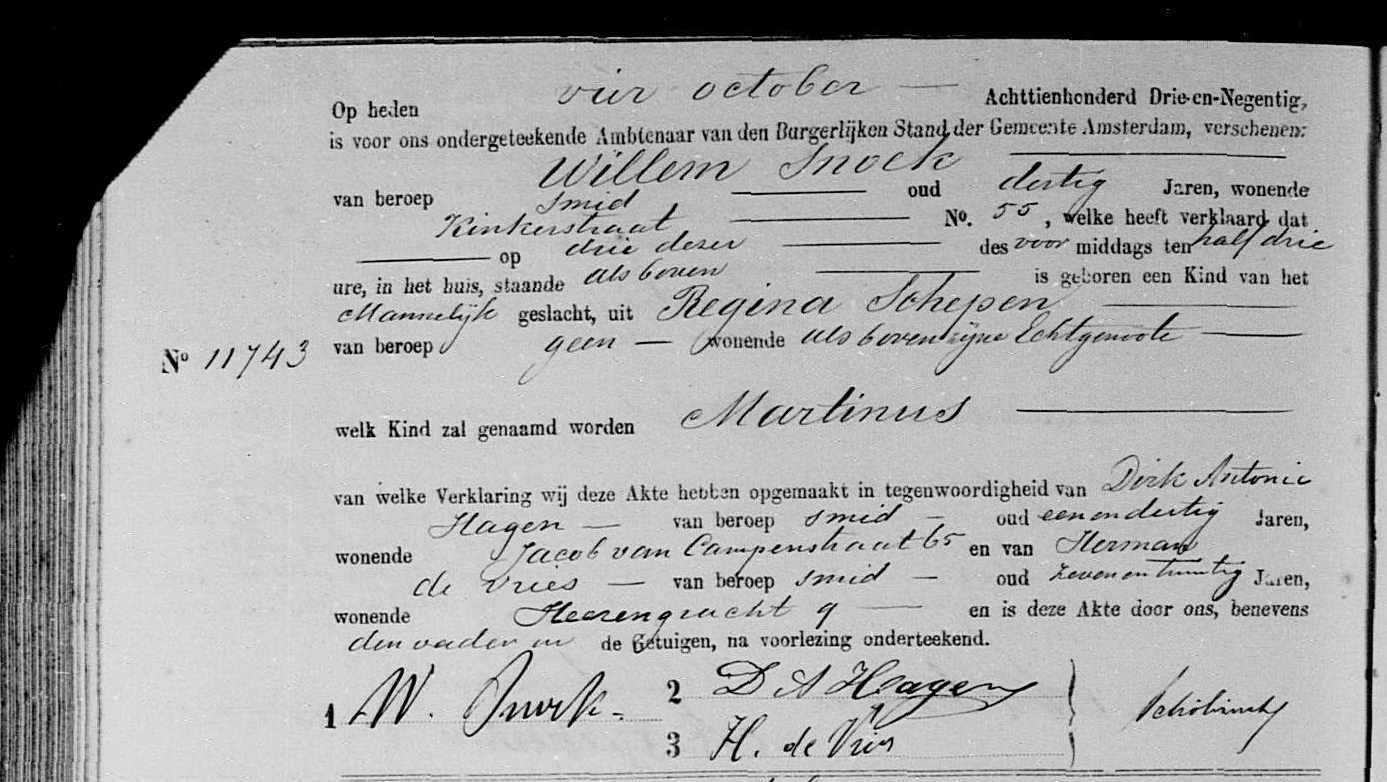 Op heden vier october — Achttienhonderd Drie-en-Negentig,
is voor ons ondergeteekende Ambtenaar van den Burgerlijken Stand der Gemeente Amsterdam, verschenen:
Willem Snoek
van beroep smid oud dertig Jaren, wonende
Kinkerstraat No. 55, welke heeft verklaard dat
op drie dezer des voor middags ten half drie
ure, in het huis, staande als boven is geboren een Kind van het
Mannelijk geslacht, uit Regina Schepen
van beroep geen — wonende als boven zijne Echtgenoote
No 11743
welk Kind zal genaamd worden Martinus
van welke Verklaring wij deze Akte hebben opgemaakt in tegenwoordigheid van Dirk Antonie
Hagen — van beroep smid — oud eenendertig Jaren,
wonende Jacob van Campenstraat 65 en van Herman
de Vries — van beroep smid — oud zevenentwintig Jaren,
wonende Heerengracht 9 — en is deze Akte door ons, benevens
den vader en de Getuigen, na voorlezing onderteekend.
1 W. Snoek. 2 D A Hagen
3 H. de Vries